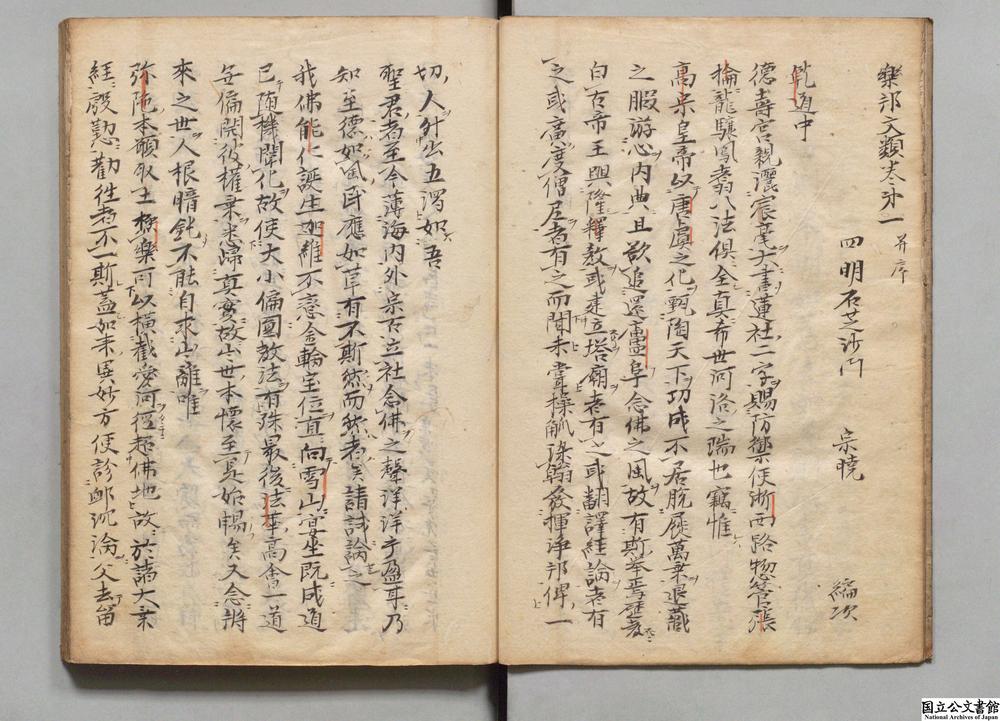 樂邦文類卷第一 并序
四明石芝沙門 宗曉 編次
乾道中
德壽宮親灑宸毫大書蓮社二字賜防禦使浙西路惣管張
掄龍驤鳳翥八法俱全真希世河洛之瑞也竊惟
高宗皇帝以唐虞之化甄陶天下功成不居脫屣萬乘退藏
之暇游心内典且欲追還廬阜念佛之風故有斯举焉歷考
自古帝王興隆釋教或建立塔廟者有之或翻譯經論者有
之或廣度僧尼者有之而聞未嘗操觚染翰發揮淨邦俾一
切人舛出五濁如吾
聖君者至今薄海内外宗古立社念佛之聲洋洋乎盈耳乃
知至德如風民應如草有不斯然而然者矣請試論之
我佛能仁誕生迦維不恋金輪宝位直向雪山宴坐既成道
已随機開化故使大小偏圓教法有殊最後法華高會一道
無偏開彼權乘悉歸真實故出世本懷至是始暢矣又念將
來之世人根暗鈍不能自求出離唯
弥陀本願取土極樂可以横截愛河徑超佛地故於諸大乘
經慇懃勸往者不一斯蓋如来異妙方便診邺沉淪父去留
国立公文書館
National Archives of Japan